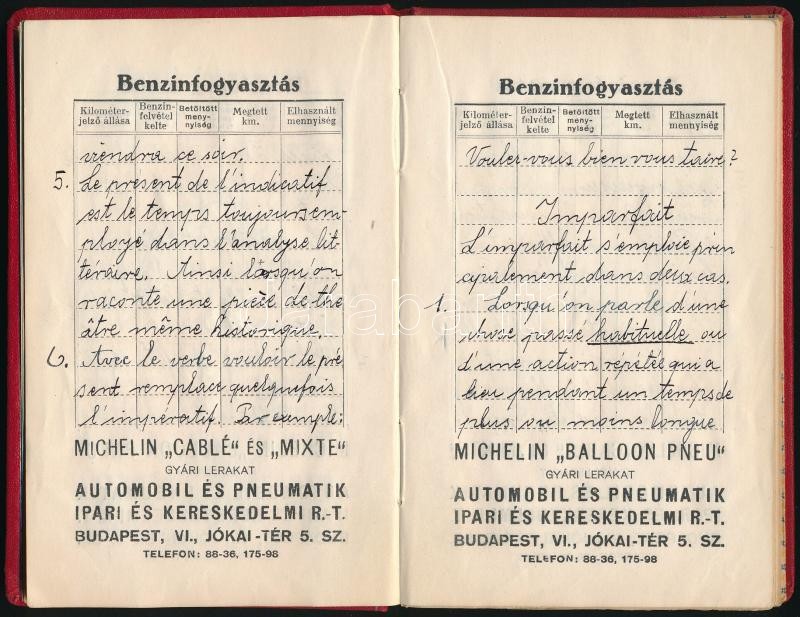 Benzinfogyasztás
Kilométer-jelző állása Benzin-felvétel kelte Betöltött meny-nyiség Megtett km. Elhasznált mennyiség
viendra ce soir.
5. Le présent de l'indicatif
est le temps toujours em-
ployé dans l'analyse lit-
téraire. Ainsi lorsqu'on
raconte une pièce de thé
âtre même historique.
6. Avec le verbe vouloir le pré
sent remplace quelquefois
l'impératif. Par exemple:
MICHELIN „CABLÉ" ÉS „MIXTE"
GYÁRI LERAKAT
AUTOMOBIL ÉS PNEUMATIK
IPARI ÉS KERESKEDELMI R.-T.
BUDAPEST, VI., JÓKAI-TÉR 5. SZ.
TELEFON: 88-36, 175-98
Benzinfogyasztás
Kilométer-jelző állása Benzin-felvétel kelte Betöltött meny-nyiség Megtett km. Elhasznált mennyiség
Voulez-vous bien vous taire?
Imparfait
L'imparfait s'emploie prin
cipalement dans deux cas.
1. Lorsqu'on parle d'une
chose passé habituelle ou
d'une action répétée qui a
lieu pendant un temps de
plus ou moins longue
MICHELIN „BALLOON PNEU"
GYÁRI LERAKAT
AUTOMOBIL ÉS PNEUMATIK
IPARI ÉS KERESKEDELMI R.-T.
BUDAPEST, VI., JÓKAI-TÉR 5. SZ.
TELEFON: 88-36, 175-98